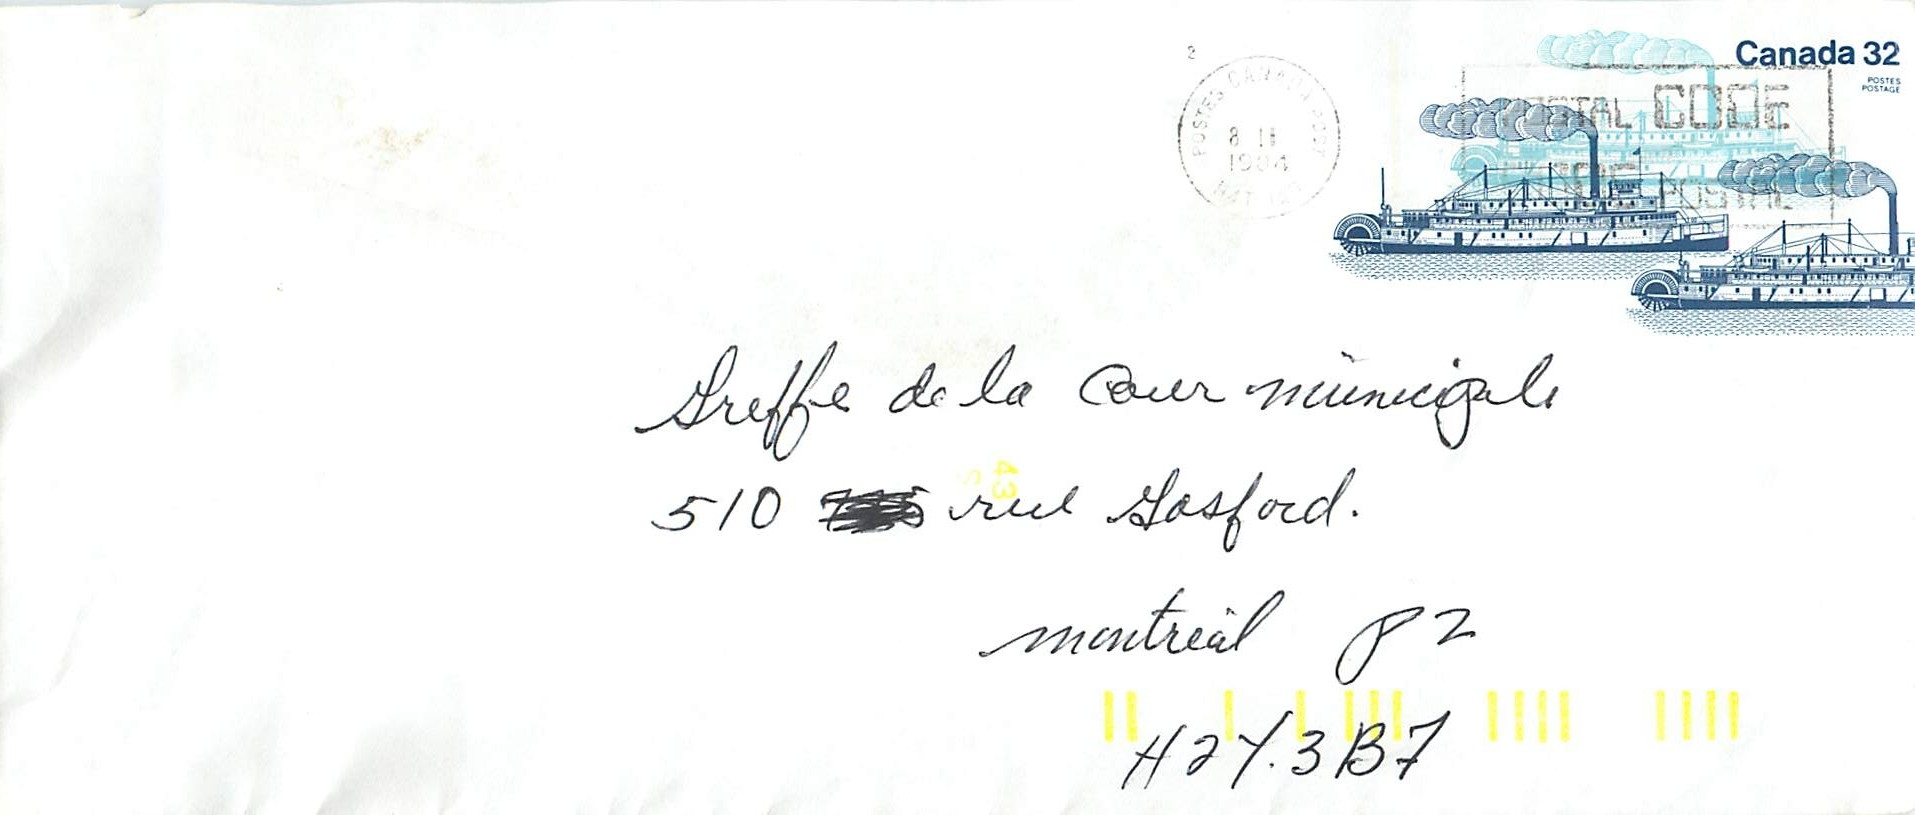 2
POSTES CANADA POST
8 II
1984
Canada 32
POSTES
POSTAGE
POSTAL CODE
CODE POSTAL
Greffe de la Cour municipale
510 rue Gosford.
43
Montréal P2
H2Y.3B7